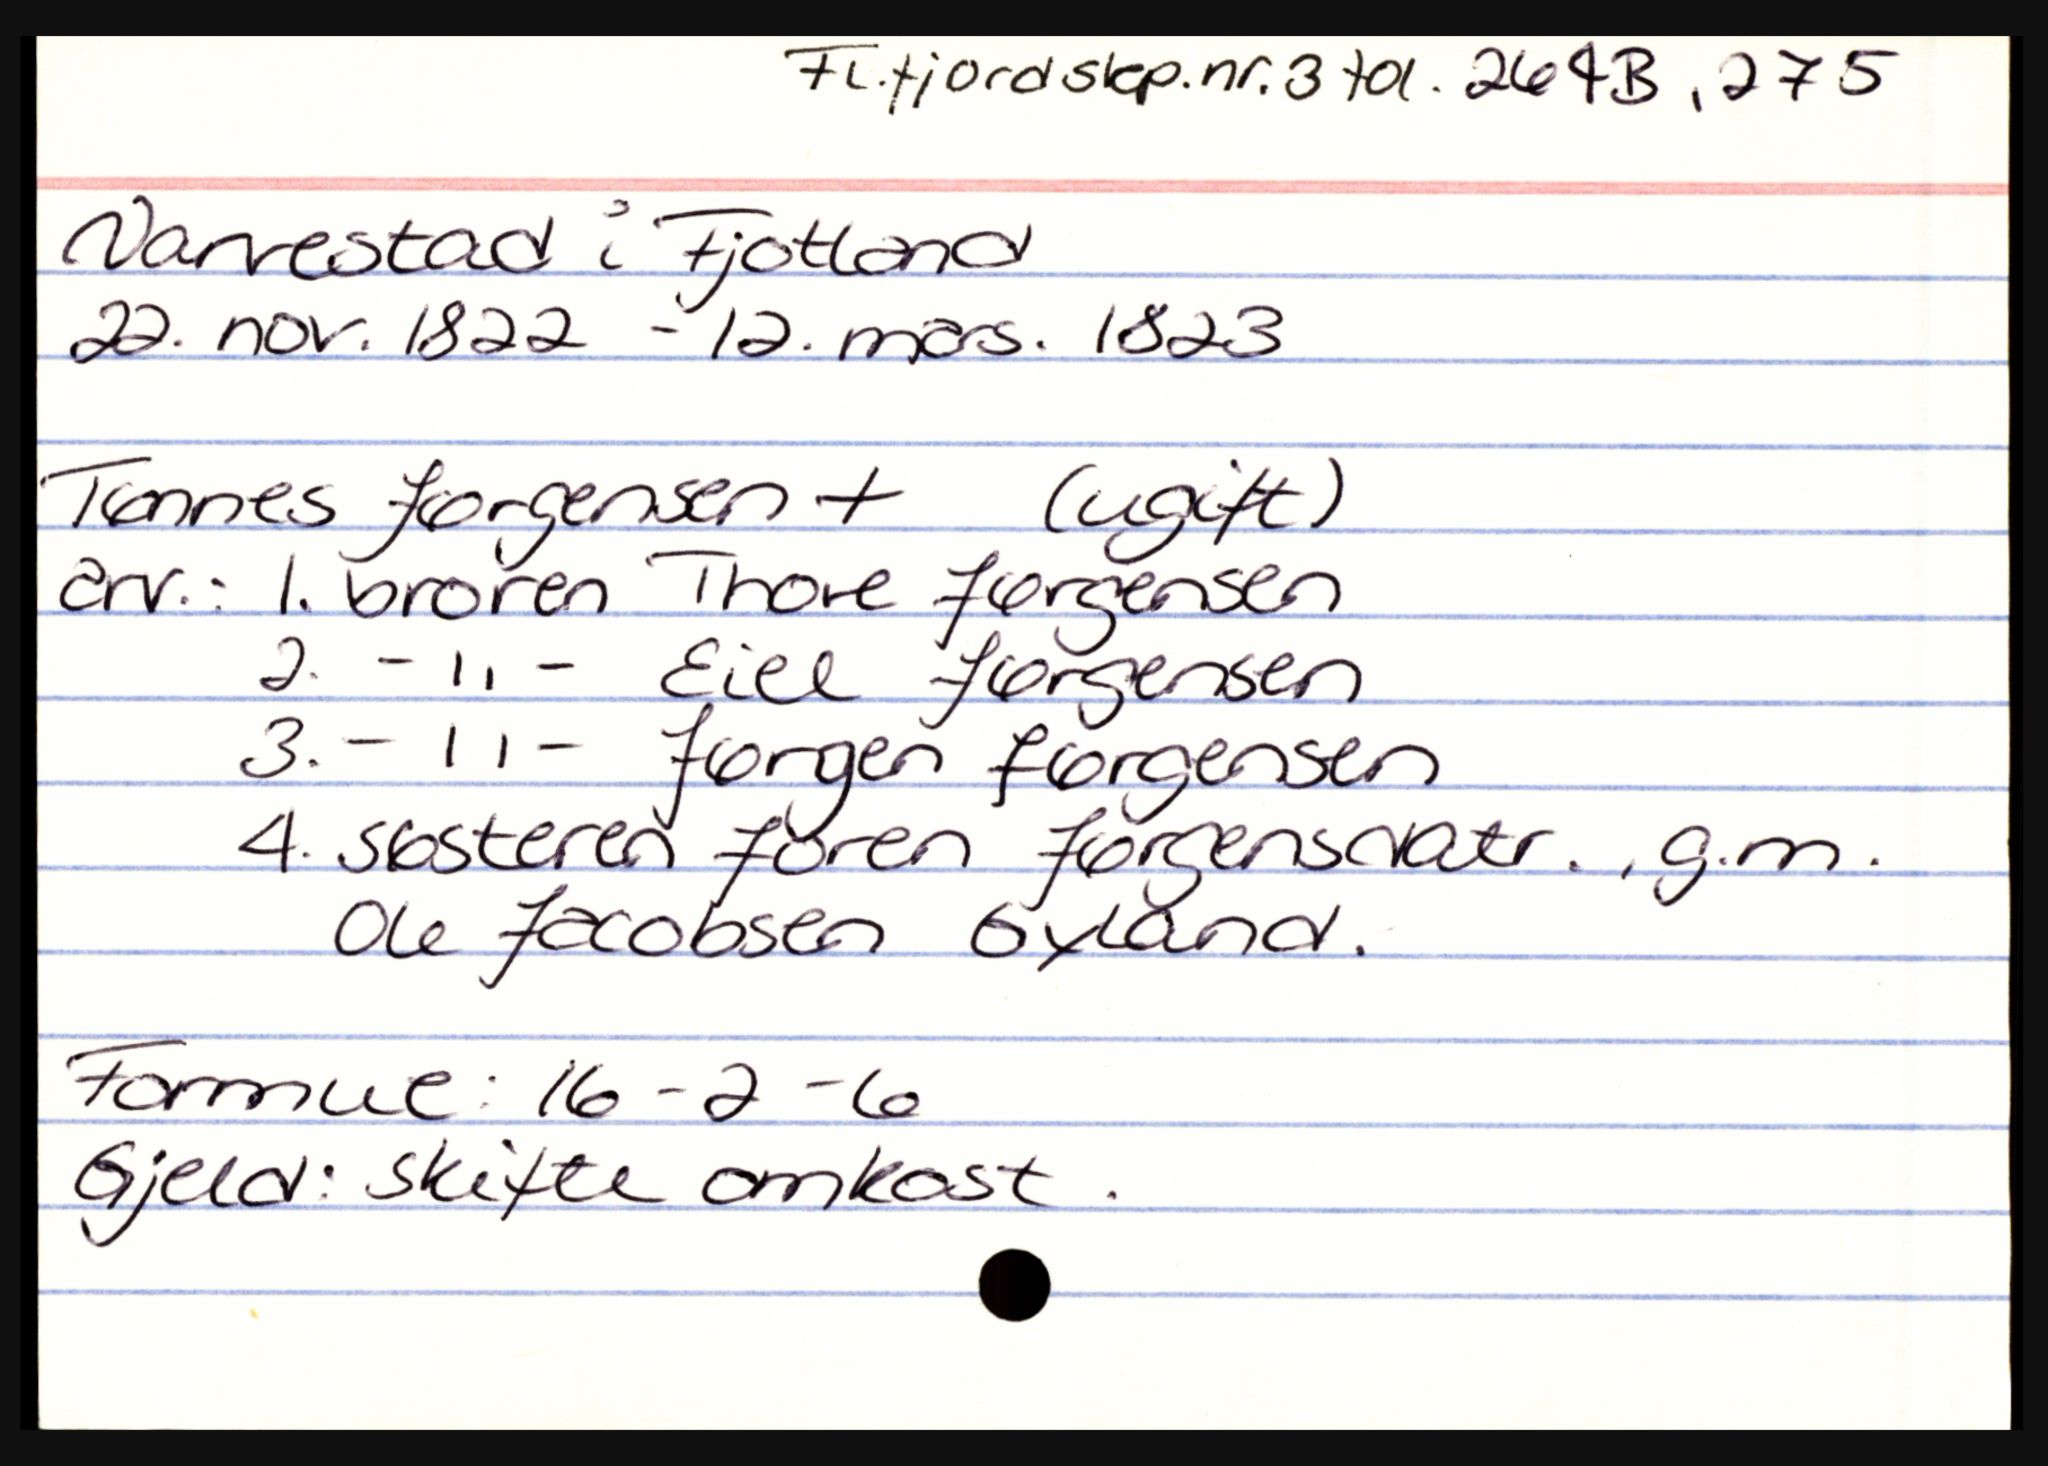 Fl.fjord skp. nr. 3 fol. 264B, 275
Narvestad i Fjotland
22. nov. 1822 - 12. mars. 1823
Tønnes Jørgensen + (ugift)
arv.: 1. broren Thore Jørgensen
2. - 11 - Eiel Jørgensen
3. - 11 - Jørgen Jørgensen
4. søsteren Joren Jørgensdatr., g.m.
Ole Jacobsen Gyland.
Formue: 16 - 2 - 6
Gjeld: skifte omkost.